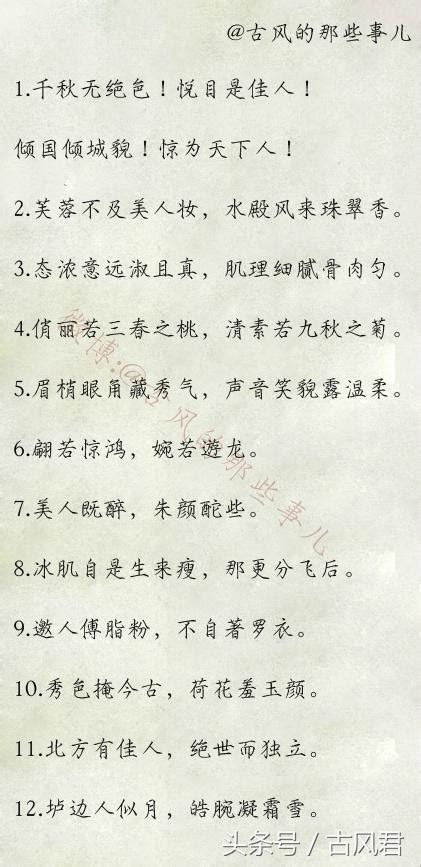 @古风的那些事儿
1.千秋无绝色！悦目是佳人！
倾国倾城貌！惊为天下人！
2.芙蓉不及美人妆，水殿风来珠翠香。
3.态浓意远淑且真，肌理细腻骨肉匀。
4.俏丽若三春之桃，清素若九秋之菊。
5.眉梢眼角藏秀气，声音笑貌露温柔。
6.翩若惊鸿，婉若遊龙。
7.美人既醉，朱颜酡些。
8.冰肌自是生来瘦，那更分飞后。
9.邀人傅脂粉，不自著罗衣。
10.秀色掩今古，荷花羞玉颜。
11.北方有佳人，绝世而独立。
12.垆边人似月，皓腕凝霜雪。
微博:@古风的那些事儿
头条号/古风君